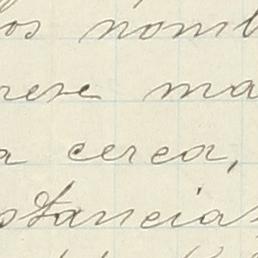 os nomb
rese ma
a cerca,
stancias